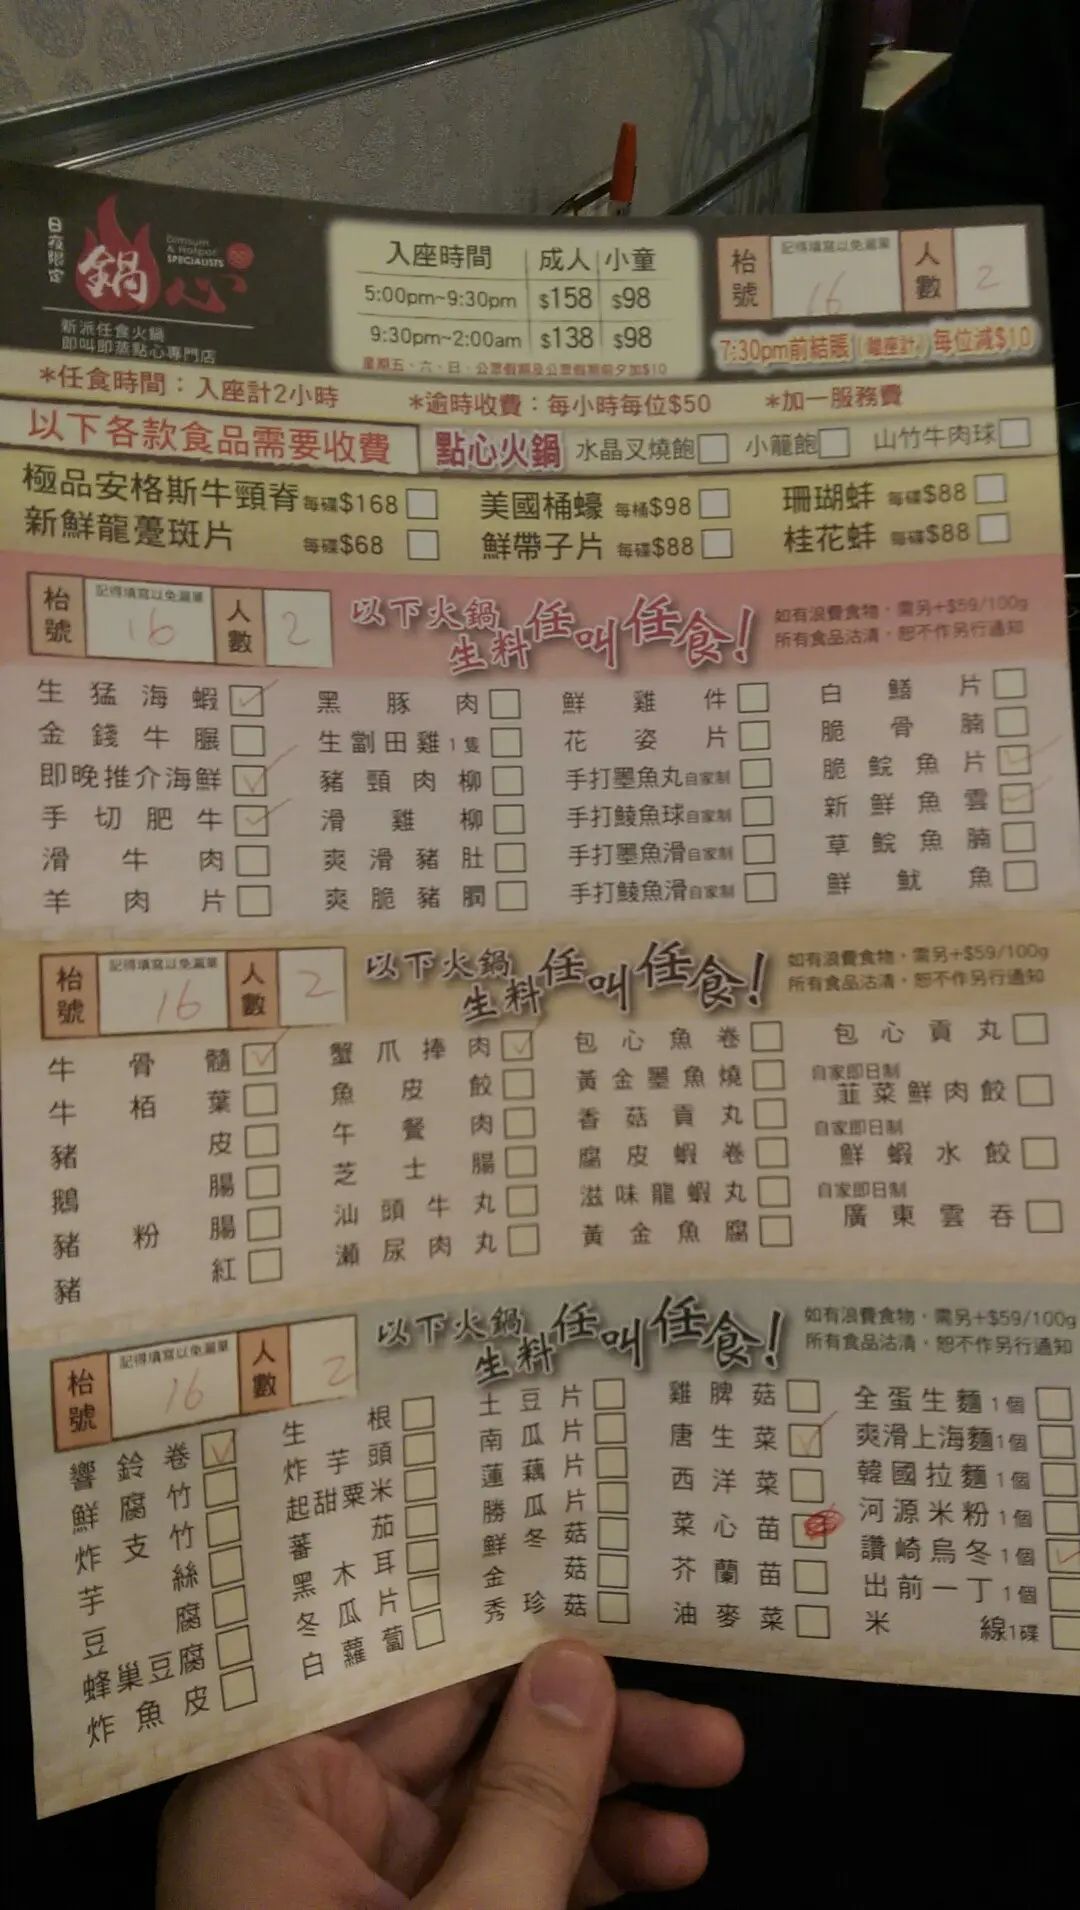 日夜限定
鍋心
Dimsum
& Hotpot
SPECIALISTS
新派任食火鍋
即叫即蒸點心專門店
入座時間 成人 小童
5:00pm~9:30pm $158 $98
9:30pm~2:00am $138 $98
星期五、六、日、公眾假期及公眾假期前夕加$10
枱號 記得填寫以免漏單 16 人數 2
7:30pm前結賬(離座計)每位減$10
*任食時間：入座計2小時 *逾時收費：每小時每位$50 *加一服務費
以下各款食品需要收費 點心火鍋 水晶叉燒飽 小籠飽 山竹牛肉球
極品安格斯牛頸脊 每碟$168 美國桶蠔 每桶$98 珊瑚蚌 每碟$88
新鮮龍躉斑片 每碟$68 鮮帶子片 每碟$88 桂花蚌 每碟$88
枱號 記得填寫以免漏單 16 人數 2 以下火鍋生料任叫任食！
如有浪費食物，需另+$59/100g
所有食品沽清，恕不作另行通知
生猛海蝦 黑豚肉 鮮雞件 白鱔片
金錢牛𦟌 生劏田雞1隻 花姿片 脆骨腩
即晚推介海鮮 豬頸肉柳 手打墨魚丸自家制 脆鯇魚片
手切肥牛 滑雞柳 手打鯪魚球自家制 新鮮魚雲
滑牛肉 爽滑豬肚 手打墨魚滑自家制 草鯇魚腩
羊肉片 爽脆豬膶 手打鯪魚滑自家制 鮮魷魚
枱號 記得填寫以免漏單 16 人數 2 以下火鍋生料任叫任食！
如有浪費食物，需另+$59/100g
所有食品沽清，恕不作另行通知
牛骨髓 蟹爪捧肉 包心魚卷 包心貢丸
牛栢葉 魚皮餃 黃金墨魚燒 自家即日制 韮菜鮮肉餃
豬皮 午餐肉 香菇貢丸 自家即日制 鮮蝦水餃
鵝腸 芝士腸 腐皮蝦卷 自家即日制 廣東雲吞
豬粉腸 汕頭牛丸 滋味龍蝦丸
豬紅 瀨尿肉丸 黃金魚腐
枱號 記得填寫以免漏單 16 人數 2 以下火鍋生料任叫任食！
如有浪費食物，需另+$59/100g
所有食品沽清，恕不作另行通知
響鈴卷 生根 土豆片 雞脾菇 全蛋生麵1個
鮮腐竹 炸芋頭 南瓜片 唐生菜 爽滑上海麵1個
炸支竹 起甜粟米 蓮藕片 西洋菜 韓國拉麵1個
芋絲 蕃茄 勝瓜片 菜心苗 河源米粉1個
豆腐 黑木耳 鮮冬菇 芥蘭苗 讚崎烏冬1個
蜂巢豆腐 冬瓜片 金菇 油麥菜 出前一丁1個
炸魚皮 白蘿蔔 秀珍菇 米線1碟